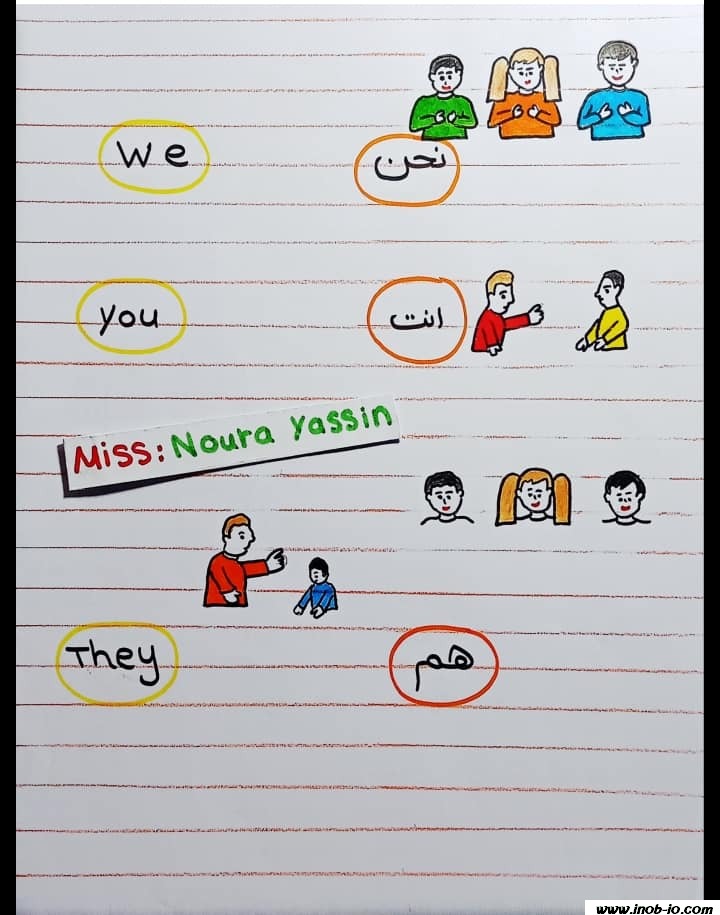 We نحن
you انت
Miss: Noura Yassin
They هم
www.inob-io.com